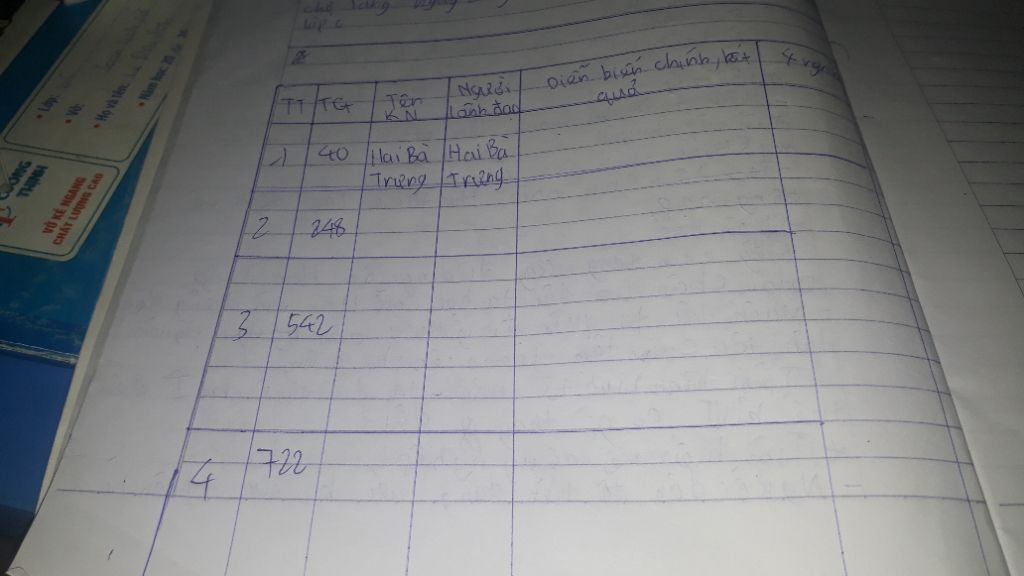 lớp 6
TT TG Tên KN Người lãnh đạo Diễn biến chính, kết quả Ý ngh
1 40 Hai Bà Trưng Hai Bà Trưng
2 248
3 542
4 722
• Lớp:
• Vở:
• Họ và tên:
• Năm học: 20
CƯỜNG THỊNH
VỞ KẺ NGANG
CHẤT LƯỢNG CAO